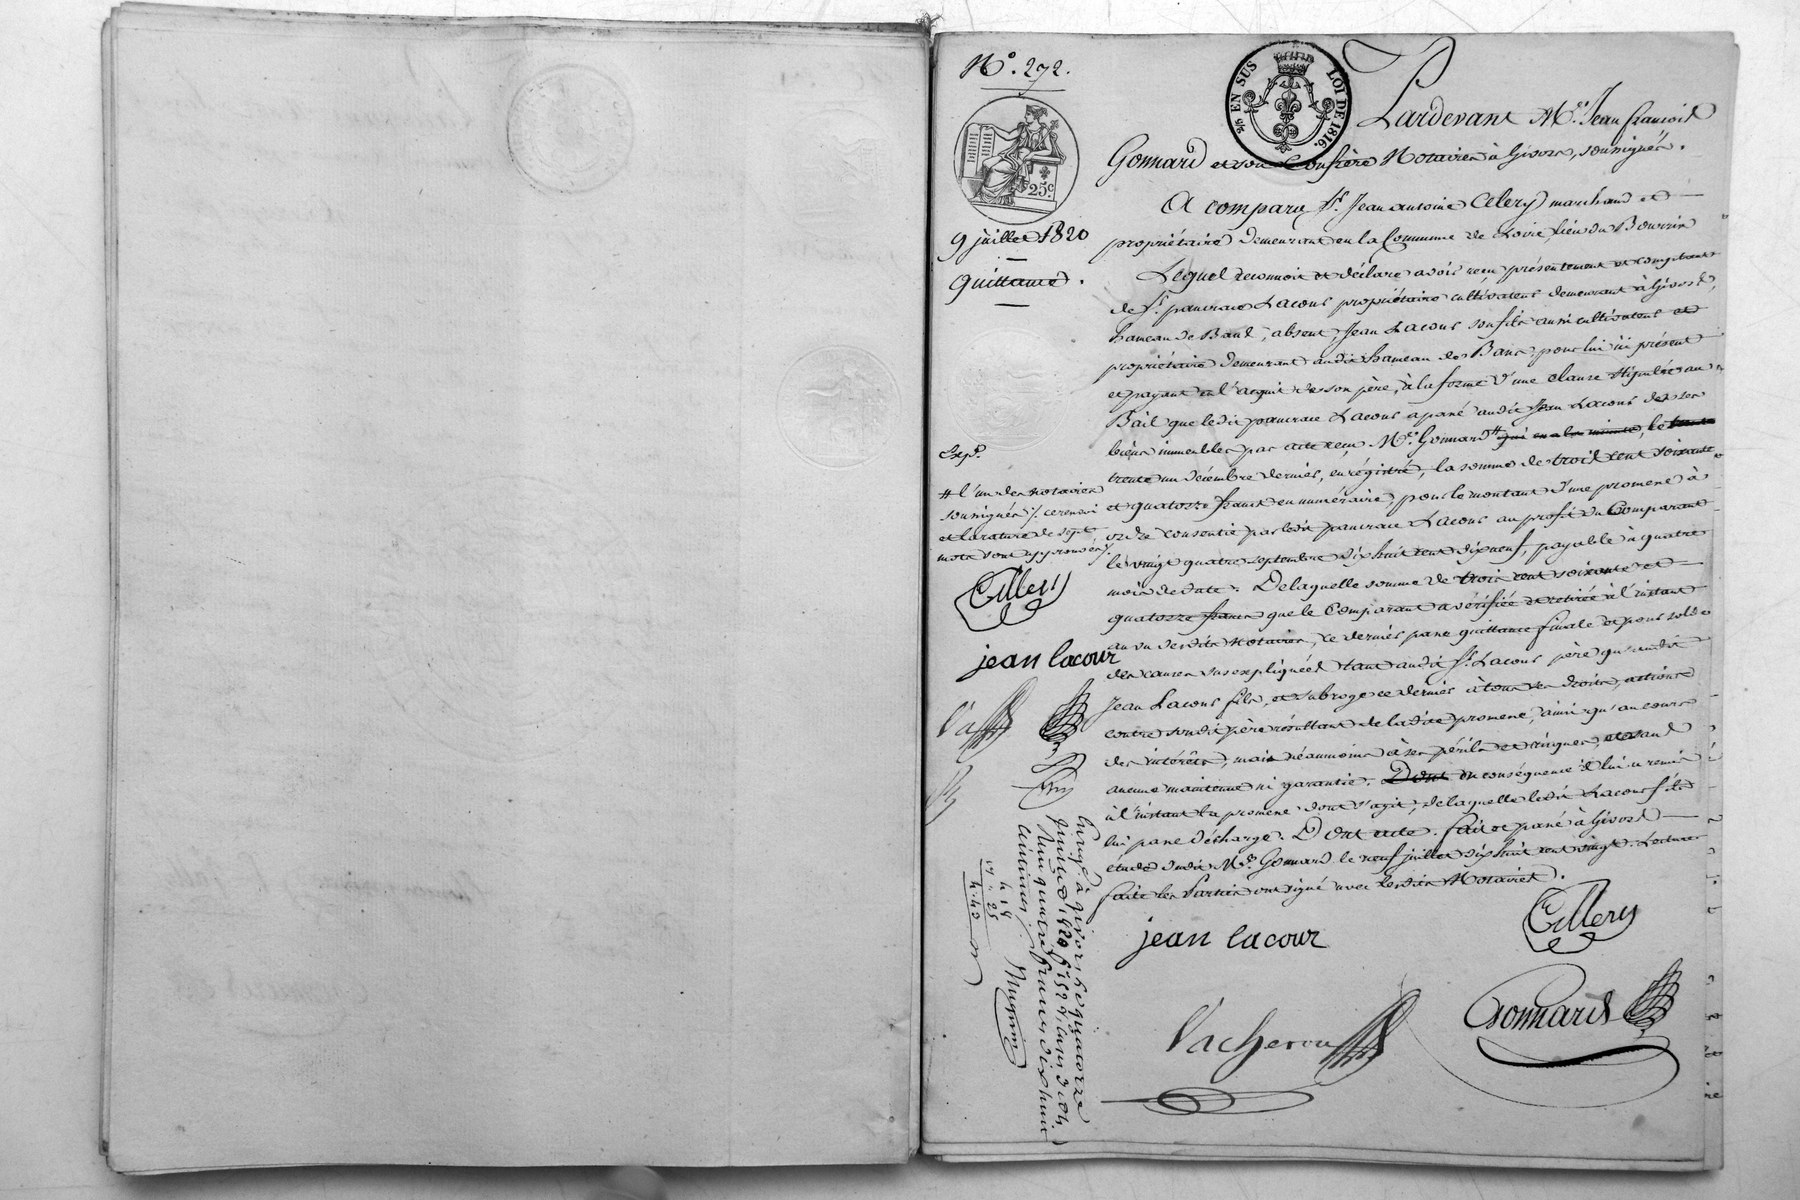 N.° 272.
5/10 EN SUS LOI DE 1816.
25.c
9 juillet 1820
Quittance.
Pardevant M.e Jean françois
Gonnard et son Confrère Notaires à Givors, soussignés.
A comparu S.r Jean antoine Celery marchand et
propriétaire demeurant en la Commune de Loire, lieu du
Lequel reconnoit et déclare avoir reçu présentement et comptant
de S.r pancrace Lacour propriétaire cultivateur demeurant à Givors,
hameau de Bans, absent, Jean Lacour son fils aussi cultivateur et
propriétaire demeurant audit hameau de Bans, pour lui ici présent
et payant en l'acquit de son père, à la forme d'une clause stipulée au
Bail que ledit pancrace Lacour a passé audit Jean Lacour de ses
biens immeubles par acte reçu M.e Gonnard # qui en a la minute, le
trente un décembre dernier, enrégistré, la somme de trois cent soixante
et quatorze francs en numéraire, pour le montant d'une promesse à
ordre consentie par ledit pancrace Lacour au profit du Comparant
le vingt quatre septembre dix huit cent dix neuf, payable à quatre
mois de date. De laquelle somme de trois cent soixante et
quatorze francs que le Comparant a vérifiée et retirée à l'instant
au vu desdits Notaires, ce dernier passe quittance finale et pour solde
des causes sus expliquées tant audit S.r Lacour père qu'audit
Jean Lacour fils, et subroge ce dernier à tous ses droits, actions
contre sondit père résultant de ladite promesse, ainsi qu'au cours
des intérêts, mais néanmoins à ses périls et risques, et sans
aucune maintenue ni garantie. Dont en conséquence il lui a remis
à l'instant la promesse dont s'agit, de laquelle ledit Lacour fils
lui passe décharge. Dont acte. fait et passé à Givors
étude dudit M.e Gonnard le neuf juillet dix huit cent vingt. Lecture
faite les Parties ont signé avec lesdits Notaires.
jean lacour
Cellery
Vacheron
Gonnard
Exp.
# l'un des notaires
soussignés /. ce renvoi
et la rature de sept
mots sont approuvés /.
Cellery
jean lacour
Va
Enregé à givors le quatorze
juillet 1820 f.
Reçu quatre francs dix huit
centimes /.
4 14
4.40